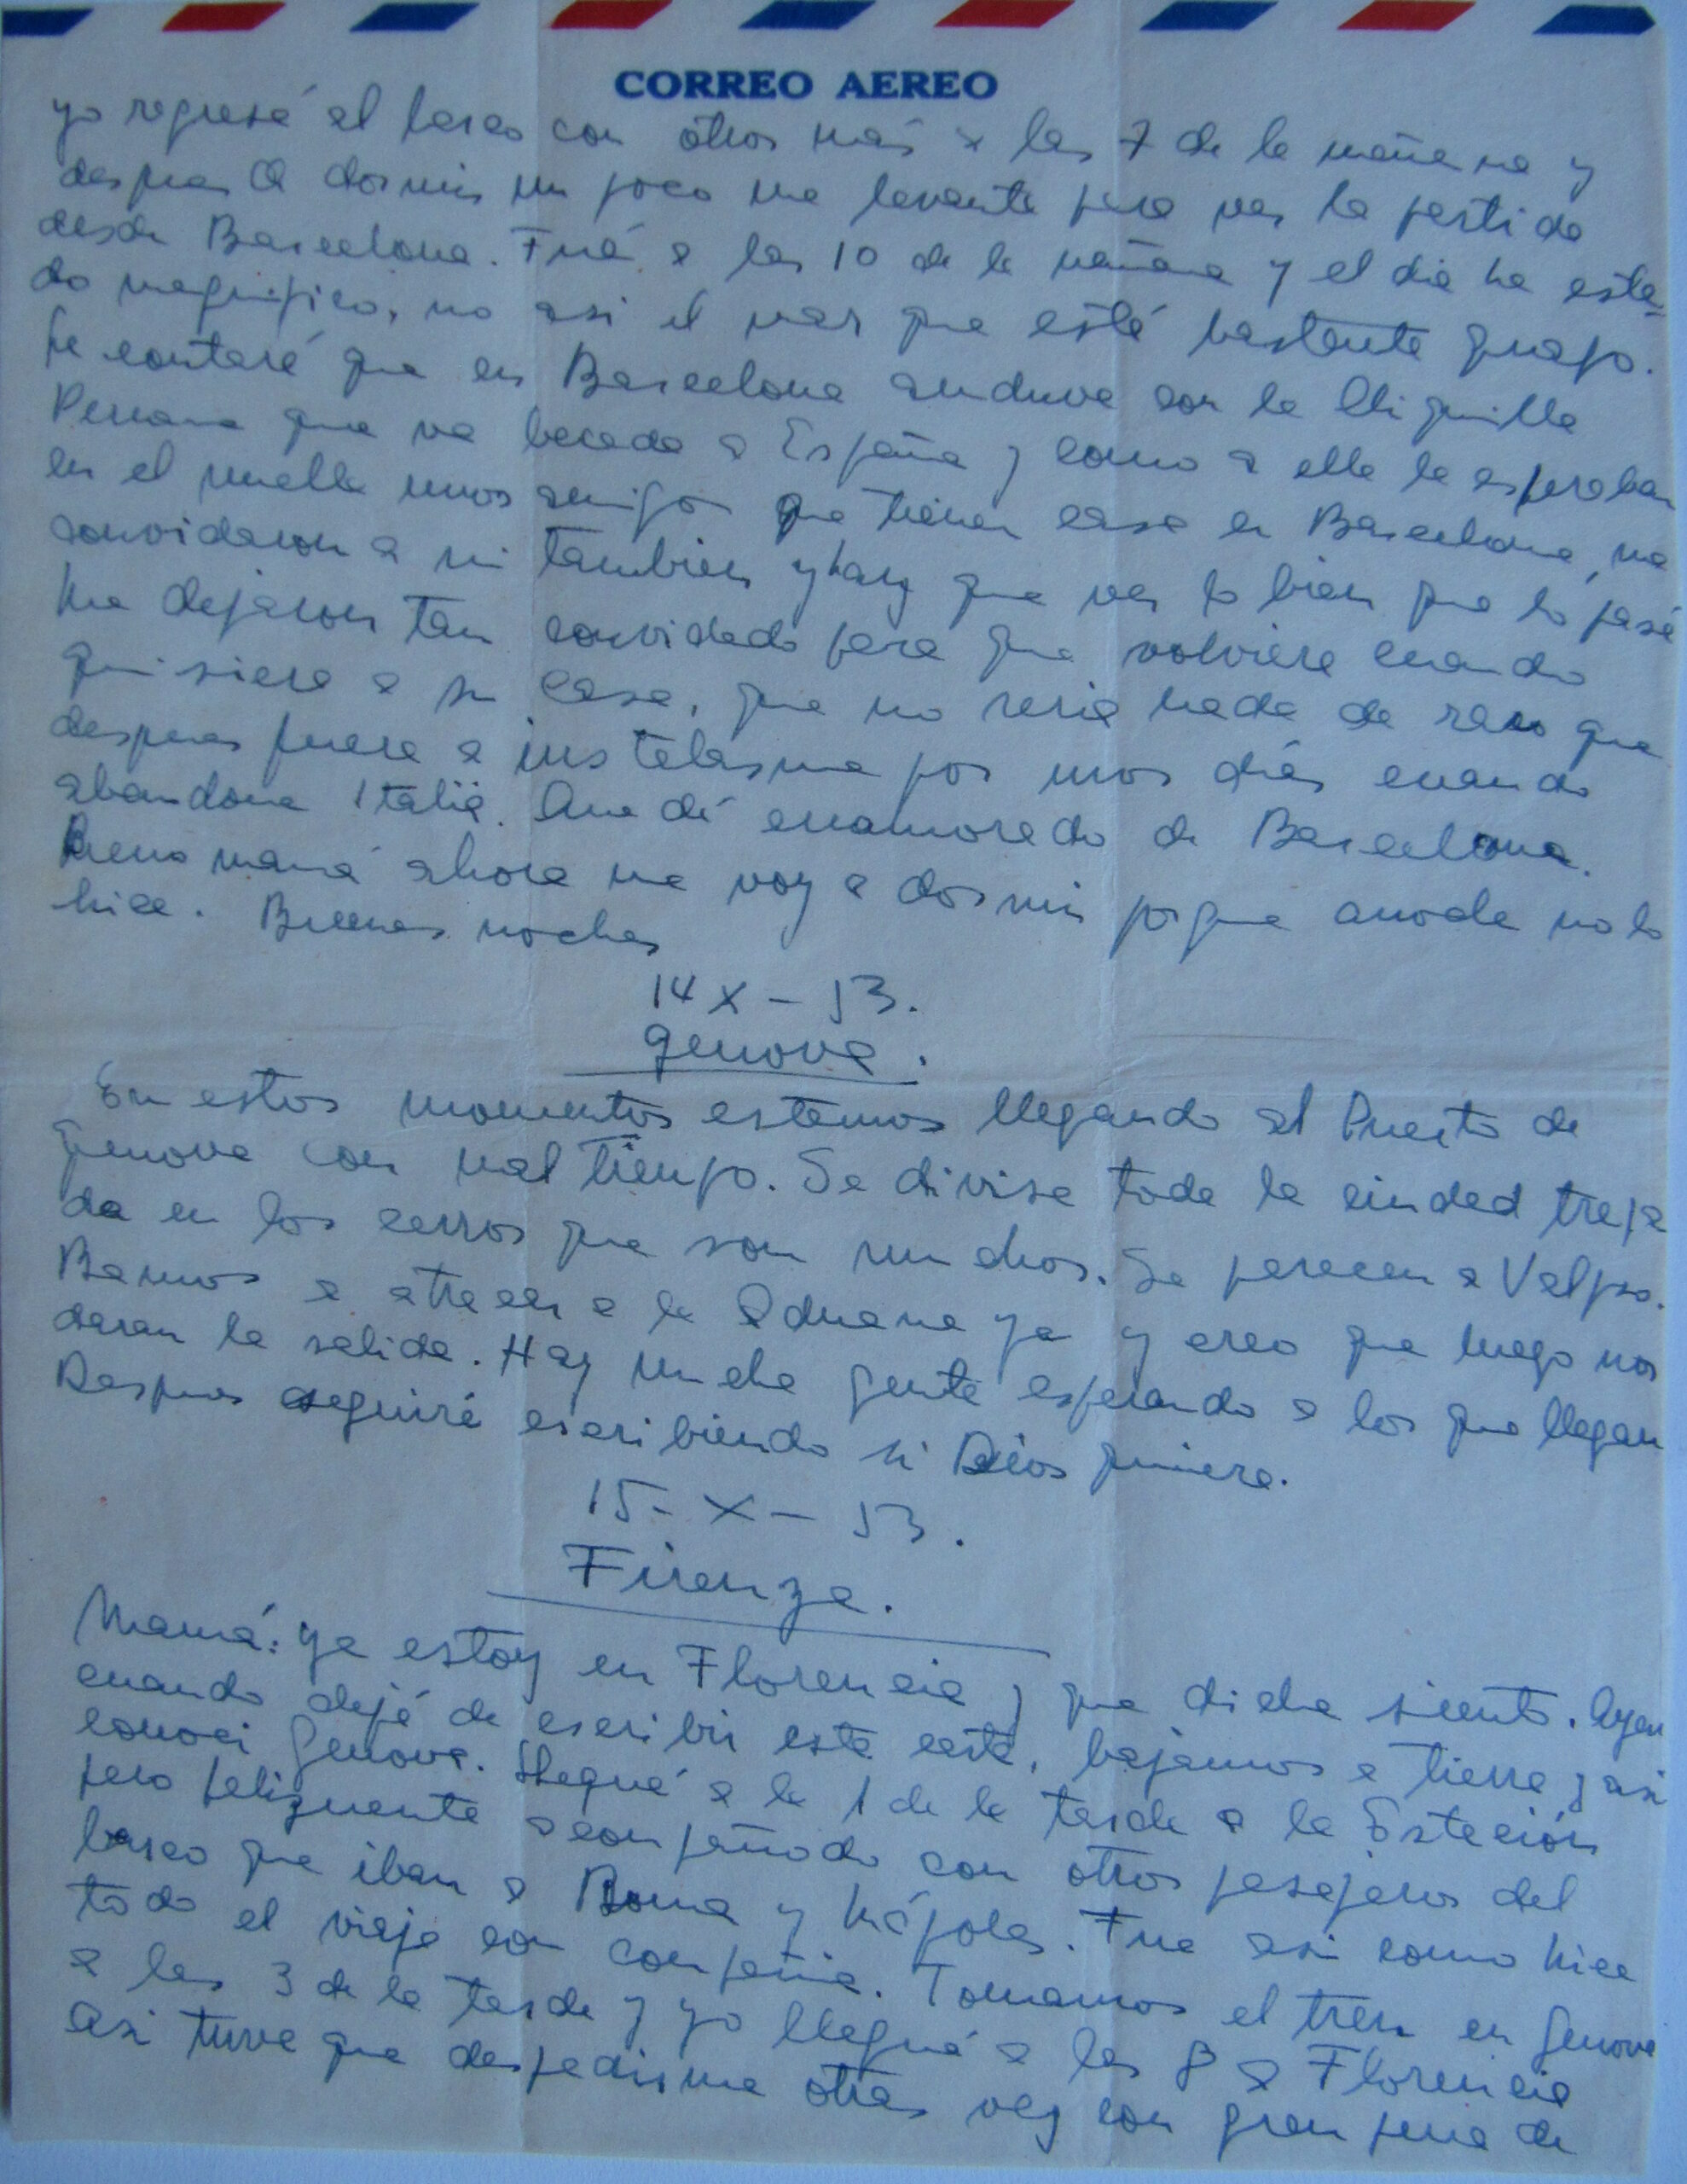 CORREO AEREO
yo regresé al barco con otros más a las 7 de la mañana y
despues de dormir un poco me levante para ver la partida
desde Barcelona. Fué a las 10 de la mañana y el dia ha esta-
do magnifico, no asi el mar que está bastante guapo.
Le contaré que en Barcelona anduve con la Chiquilla
Peruana que va becada a España y como a ella la esperaban
en el muelle unos amigos que tienen casa en Barcelona, me
convidaron a mi tambien y hay que ver lo bien que lo pasé
Me dejaron tan convidado para que volviera cuando
quisiera a su casa, que no seria nada de raro que
despues fuera a instalarme por unos dias cuando
abandone Italia. Quedé enamorado de Barcelona.
Bueno mamá ahora me voy a dormir porque anoche no lo
hice. Buenas noches
14 X - 53.
Genova.
En estos momentos estamos llegando al Puerto de
Genova con mal tiempo. Se divisa toda la ciudad trepa
da en los cerros que son muchos. Se parecen a Valpso.
Bamos a atracar a la Aduana ya y creo que luego nos
daran la salida. Hay mucha gente esperando a los que llegan
Despues seguiré escribiendo si Dios quiere.
15 - X - 53.
Firenze.
Mamá: ya estoy en Florencia y que dicha siento. Ayer
cuando dejé de escribir esta carta, bajamos a tierra y asi
conoci Genova. Llegué a la 1 de la tarde a la Estación
pero felizmente acompañado con otros pasajeros del
barco que iban a Roma y Nápoles. Fue asi como hice
todo el viaje con compañia. Tomamos el tren en Genova
a las 3 de la tarde y yo llegué a las 8 a Florencia
Asi tuve que despedirme otra vez con gran pena de